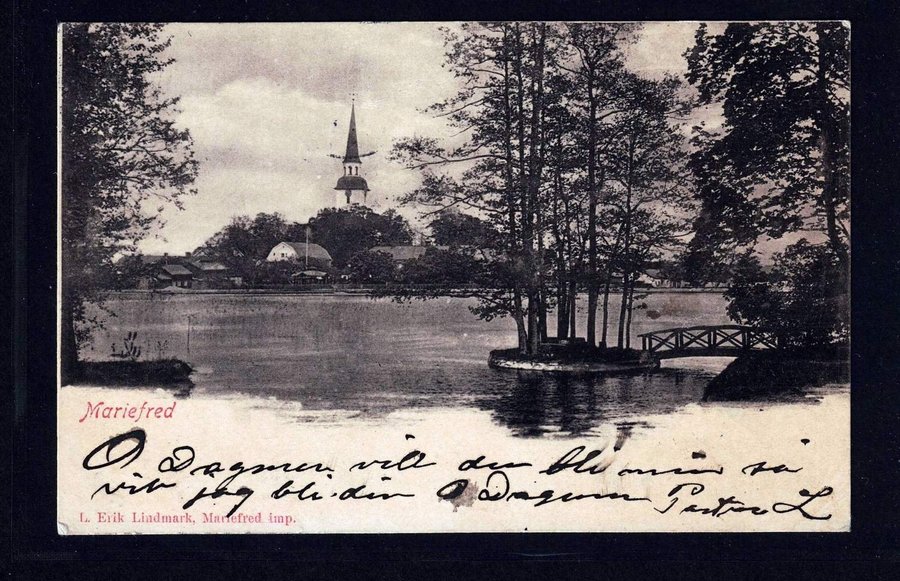 Mariefred
O Dagmar vill du bli min så
vib jag bli din O Dagmar
L. Erik Lindmark, Mariefred imp.